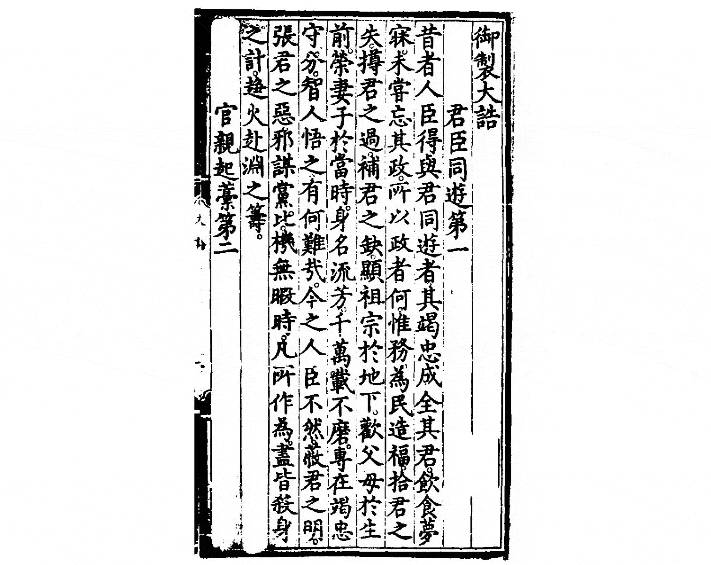 御製大誥
君臣同遊第一
昔者人臣得與君同遊者其竭忠成全其君飲食夢
寐未嘗忘其政所以政者何惟務為民造福拾君之
失撙君之過補君之缺顯祖宗於地下歡父母於生
前榮妻子於當時身名流芳千萬載不磨專在竭忠
守分智人悟之有何難哉今之人臣不然蔽君之明
張君之惡邪謀黨比機無暇時凡所作為盡皆殺身
之計趨火赴淵之籌
官親起藁第二